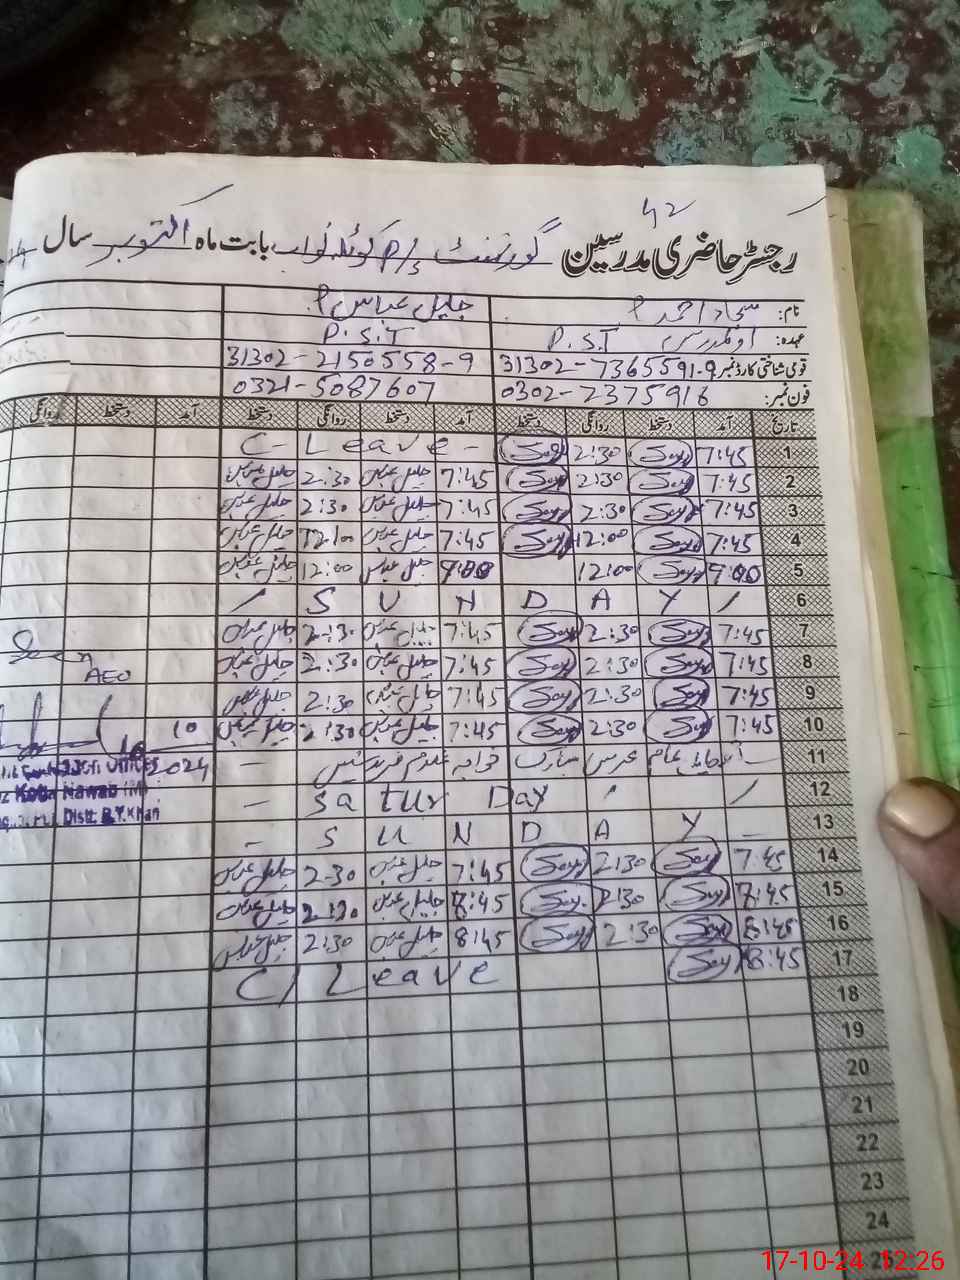 42
رجسٹر حاضری مدرسین گورنمنٹ P/S کوٹلہ نواب بابت ماہ اکتوبر سال
نام: سجاد احمد جلیل عباس
عہدہ: P.S.T P.S.T
قومی شناختی کارڈ نمبر 31302-7365591-9 31302-2150558-9
فون نمبر: 0302-7375916 0321-5087607
تاریخ آمد دستخط روانگی دستخط آمد دستخط روانگی دستخط آمد دستخط روانگی
1 7:45 2:30 C-Leave-
2 7:45 2:30 7:45 جلیل عباس 2:30 جلیل عباس
3 7:45 2:30 7:45 جلیل عباس 2:30 جلیل عباس
4 7:45 12:00 7:45 جلیل عباس 12:00 جلیل عباس
5 9:00 12:00 9:00 جلیل عباس 12:00 جلیل عباس
6 / S U N D A Y /
7 7:45 2:30 7:45 جلیل عباس 2:30 جلیل عباس
8 7:45 2:30 7:45 جلیل عباس 2:30 جلیل عباس
AEO
9 7:45 2:30 7:45 جلیل عباس 2:30 جلیل عباس
10 7:45 2:30 7:45 جلیل عباس 2:30 جلیل عباس
10
11 عام عرس مبارک خواجہ غلام فرید
12 - Satur Day /
Kotla Nawab (M)
Distt: R.Y.Khan
13 - S U N D A Y -
14 7:45 2:30 7:45 جلیل عباس 2-30 جلیل عباس
15 8:45 2:30 8:45 جلیل عباس 2:30 جلیل عباس
16 8:45 2:30 8:45 جلیل عباس 2:30 جلیل عباس
17 8:45 C/Leave
18
19
20
21
22
23
24
25
17-10-24 12:26